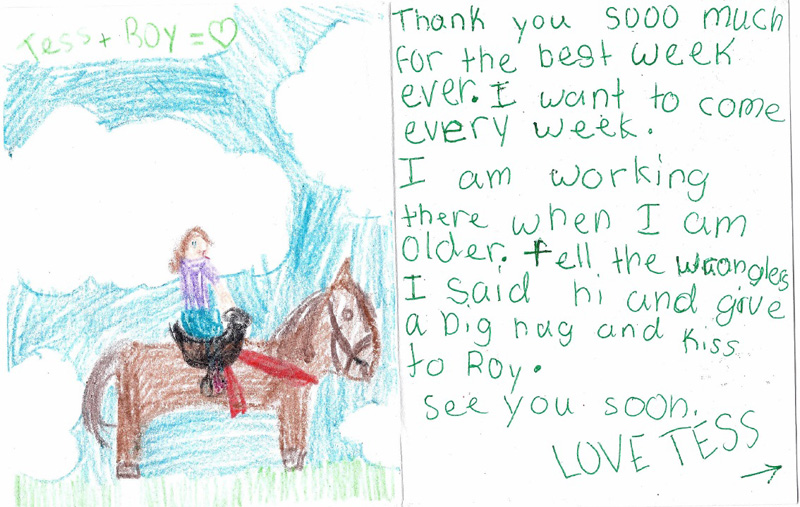 Tess + Roy = ♡
Thank you sooo much
for the best week
ever. I want to come
every week.
I am working
there when I am
older. Tell the wrongles
I said hi and give
a big hug and kiss
to Roy.
See you soon.
LOVE TESS
→